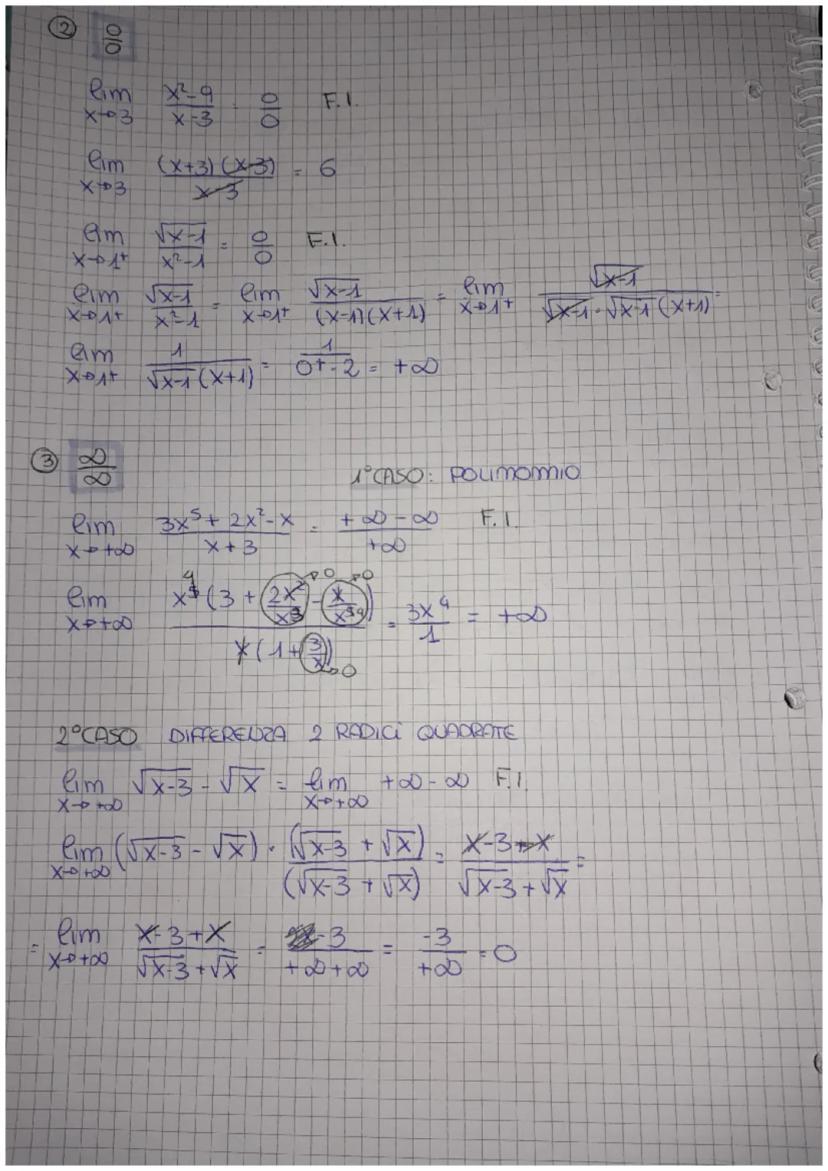 ② 0/0
lim x→3 (x²-9)/(x-3) = 0/0 F.I.
lim x→3 ((x+3)(x-3))/(x-3) = 6
lim x→1⁺ √(x-1)/(x²-1) = 0/0 F.I.
lim x→1⁺ √(x-1)/(x²-1) = lim x→1⁺ √(x-1)/((x-1)(x+1)) = lim x→1⁺ √(x-1)/(√(x-1)·√(x-1)(x+1)) =
lim x→1⁺ 1/(√(x-1)(x+1)) = 1/(0⁺·2) = +∞
③ ∞/∞
1° CASO: POLINOMIO
lim x→+∞ (3x⁵+2x²-x)/(x+3) = (+∞-∞)/+∞ F.I.
lim x→+∞ (x⁵⁴(3+2x²/x⁵³→0 - x/x⁵⁴→0))/(x(1+3/x→0)) = 3x⁴/1 = +∞
2° CASO DIFFERENZA 2 RADICI QUADRATE
lim x→+∞ √(x-3) - √x = lim x→+∞ +∞-∞ F.I.
lim x→+∞ (√(x-3) - √x) · (√(x-3) + √x)/(√(x-3) + √x) = (x-3+x)/(√(x-3)+√x) =
= lim x→+∞ (x-3+x)/(√(x-3)+√x) = -3/(+∞+∞) = -3/+∞ = 0